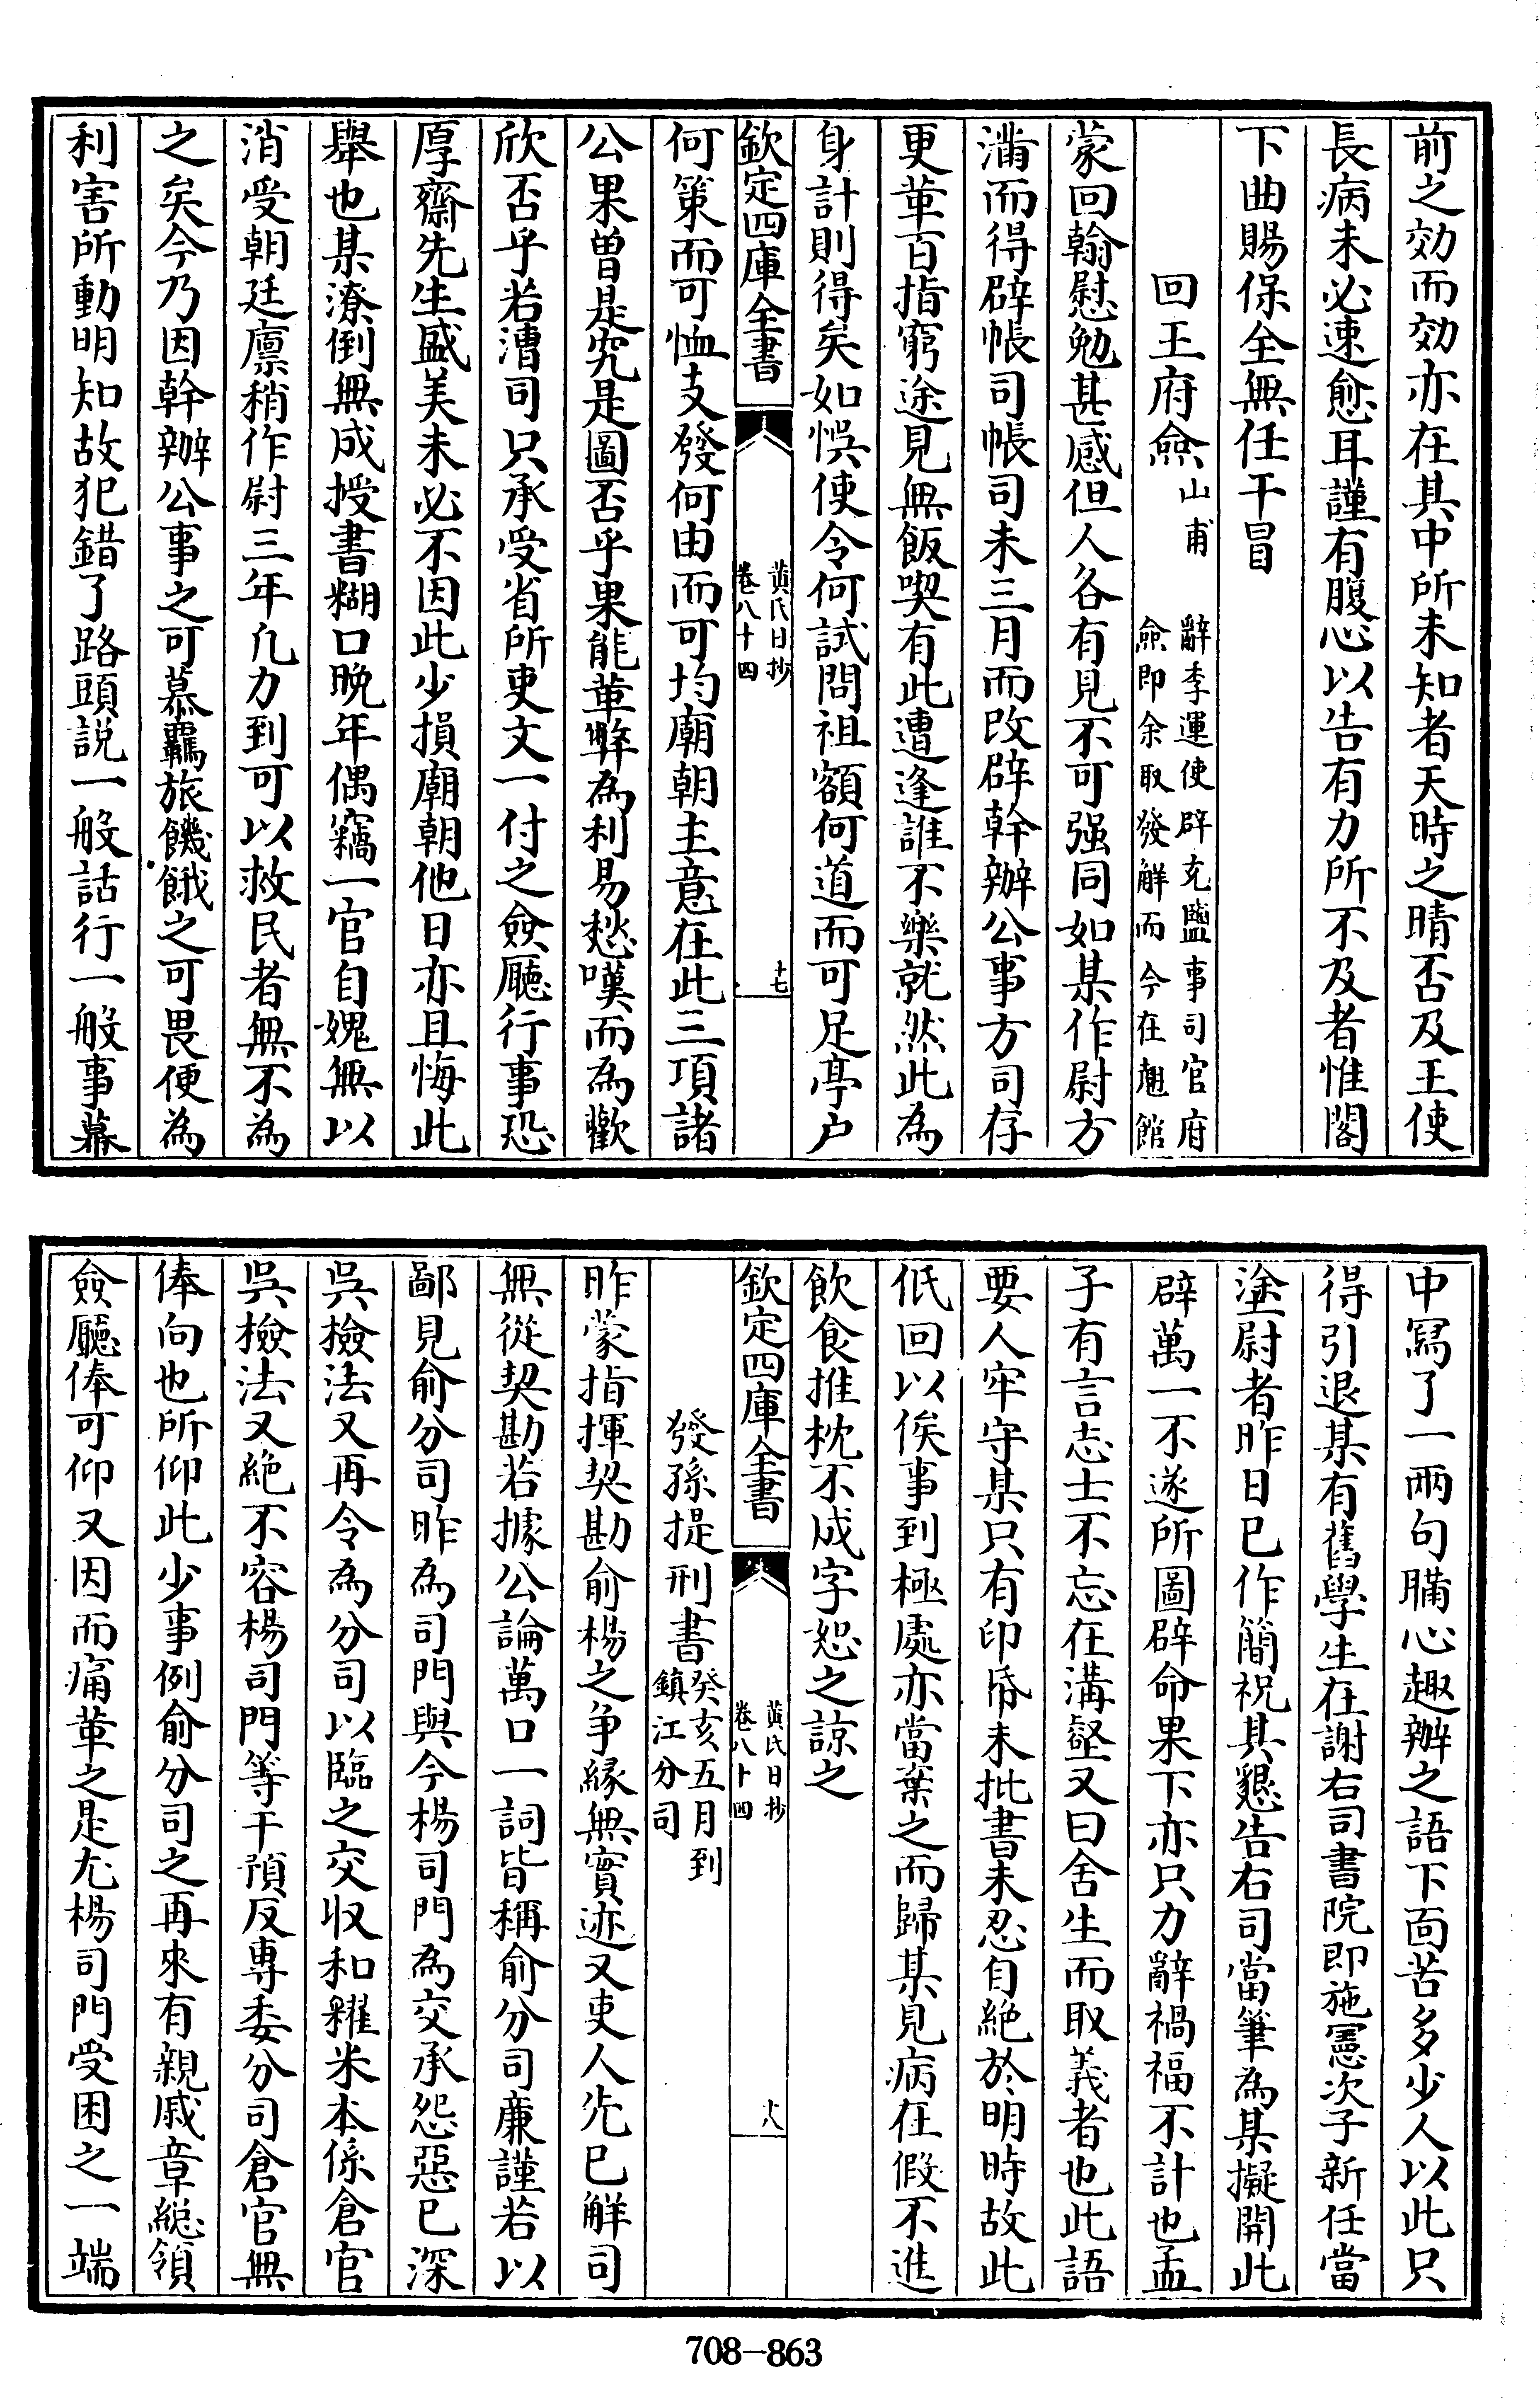 前之效而效亦在其中所未知者天時之晴否及王使
長病未必速愈耳謹有腹心以告有力所不及者惟閣
下曲賜保全無任干冒
回王府僉山甫 辭李運使辟充鹽事司官府
僉即余取發解而今在魁館
蒙回翰慰勉甚感但人各有見不可强同如某作尉方
滿而得辟帳司帳司未三月而改辟幹辦公事方司存
更革百指窮途見無飯喫有此遭逢誰不樂就然此為
身計則得矣如悞使令何試問祖額何道而可足亭户
欽定四庫全書
黄氏日抄
卷八十四
十七
何策而可恤支發何由而可均廟朝主意在此三項諸
公果曽是究是圖否乎果能革弊為利易愁嘆而為歡
欣否乎若漕司只承受省所吏文一付之僉廳行事恐
厚齋先生盛美未必不因此少損廟朝他日亦且悔此
舉也某潦倒無成授書糊口晚年偶竊一官自媿無以
消受朝廷廪稍作尉三年凡力到可以救民者無不為
之矣今乃因幹辦公事之可慕羈旅饑餓之可畏便為
利害所動明知故犯錯了路頭説一般話行一般事幕
中冩了一兩句瞞心趣辦之語下面苦多少人以此只
得引退某有舊學生在謝右司書院即施憲次子新任當
塗尉者昨日已作簡祝其懇告右司當筆為某擬開此
辟萬一不遂所圖辟命果下亦只力辭禍福不計也孟
子有言志士不忘在溝壑又曰舍生而取義者也此語
要人牢守某只有印帋未批書未忍自絶於明時故此
低回以俟事到極處亦當棄之而歸某見病在假不進
飲食推枕不成字恕之諒之
欽定四庫全書
黄氏日抄
卷八十四
十八
發孫提刑書癸亥五月到
鎮江分司
昨蒙指揮契勘俞楊之争縁無實迹又吏人先已解司
無從契勘若據公論萬口一詞皆稱俞分司亷謹若以
鄙見俞分司昨為司門與今楊司門為交承怨惡已深
吳撿法又再令為分司以臨之交収和糴米本係倉官
吳撿法又絶不容楊司門等干預反專委分司倉官無
俸向也所仰此少事例俞分司之再來有親戚章縂領
僉廳俸可仰又因而痛革之是尤楊司門受困之一端
708-863